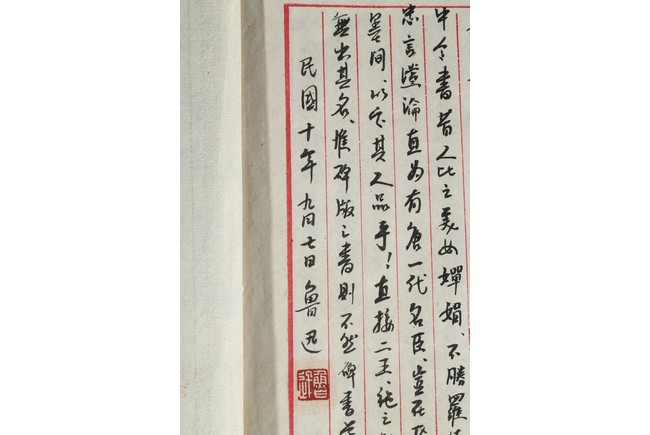 中令書昔人比之美女嬋娟、不勝羅
忠言讜論直為有唐一代名臣、豈在
墨間、以定其人品乎！直接二王、絕之
無出其名、惟碑版之書則不然碑書
民國十年九月七日魯迅
魯迅